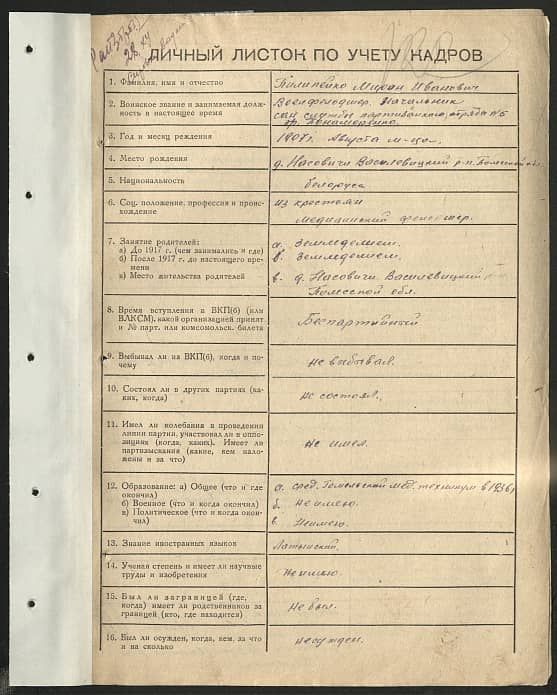 28.XI
ЛИЧНЫЙ ЛИСТОК ПО УЧЕТУ КАДРОВ
1. Фамилия, имя и отчество
Пилипенко Мирон Иванович
2. Воинское звание и занимаемая долж-
ность в настоящее время
Военфельдшер. Начальник
сан службы партизанского отряда №5
3. Год и месяц рождения
1907 г. Августа м-ца.
4. Место рождения
д. Насовичи Василевицкий р-н Полесской обл.
5. Национальность
белорус
6. Соц. положение, профессия и проис-
хождение
из крестьян
Медицинский фельдшер.
7. Занятие родителей:
а) До 1917 г. (чем занимались и где)
б) После 1917 г. до настоящего вре-
мени
в) Место жительства родителей
а. Земледелием.
б. Земледелием.
в. д. Насовичи Василевицкий р-н
Полесской обл.
8. Время вступления в ВКП(б) (или
ВЛКСМ), какой организацией принят
и № парт. или комсомольск. билета
Беспартийный
9. Выбывал ли из ВКП(б), когда и по-
чему
не выбывал.
10. Состоял ли в других партиях (ка-
ких, когда)
не состоял.
11. Имел ли колебания в проведении
линии партии, участвовал ли в оппо-
зициях (когда, каких). Имеет ли
партвзыскания (какие, кем нало-
жены и за что)
не имел.
12. Образование: а) Общее (что и где
окончил)
б) Военное (что и когда окончил)
в) Политическое (что и когда окон-
чил)
а. сред. Гомельский мед. техникум в 1936 г
б. Не имею.
в. Неимею.
13. Знание иностранных языков
Латынский.
14. Ученая степень и имеет ли научные
труды и изобретения
Неимею.
15. Был ли заграницей (где,
когда) имеет ли родственников за
границей (кто, где находится)
Не был.
16. Был ли осужден, когда, кем, за что
и на сколько
неосужден.